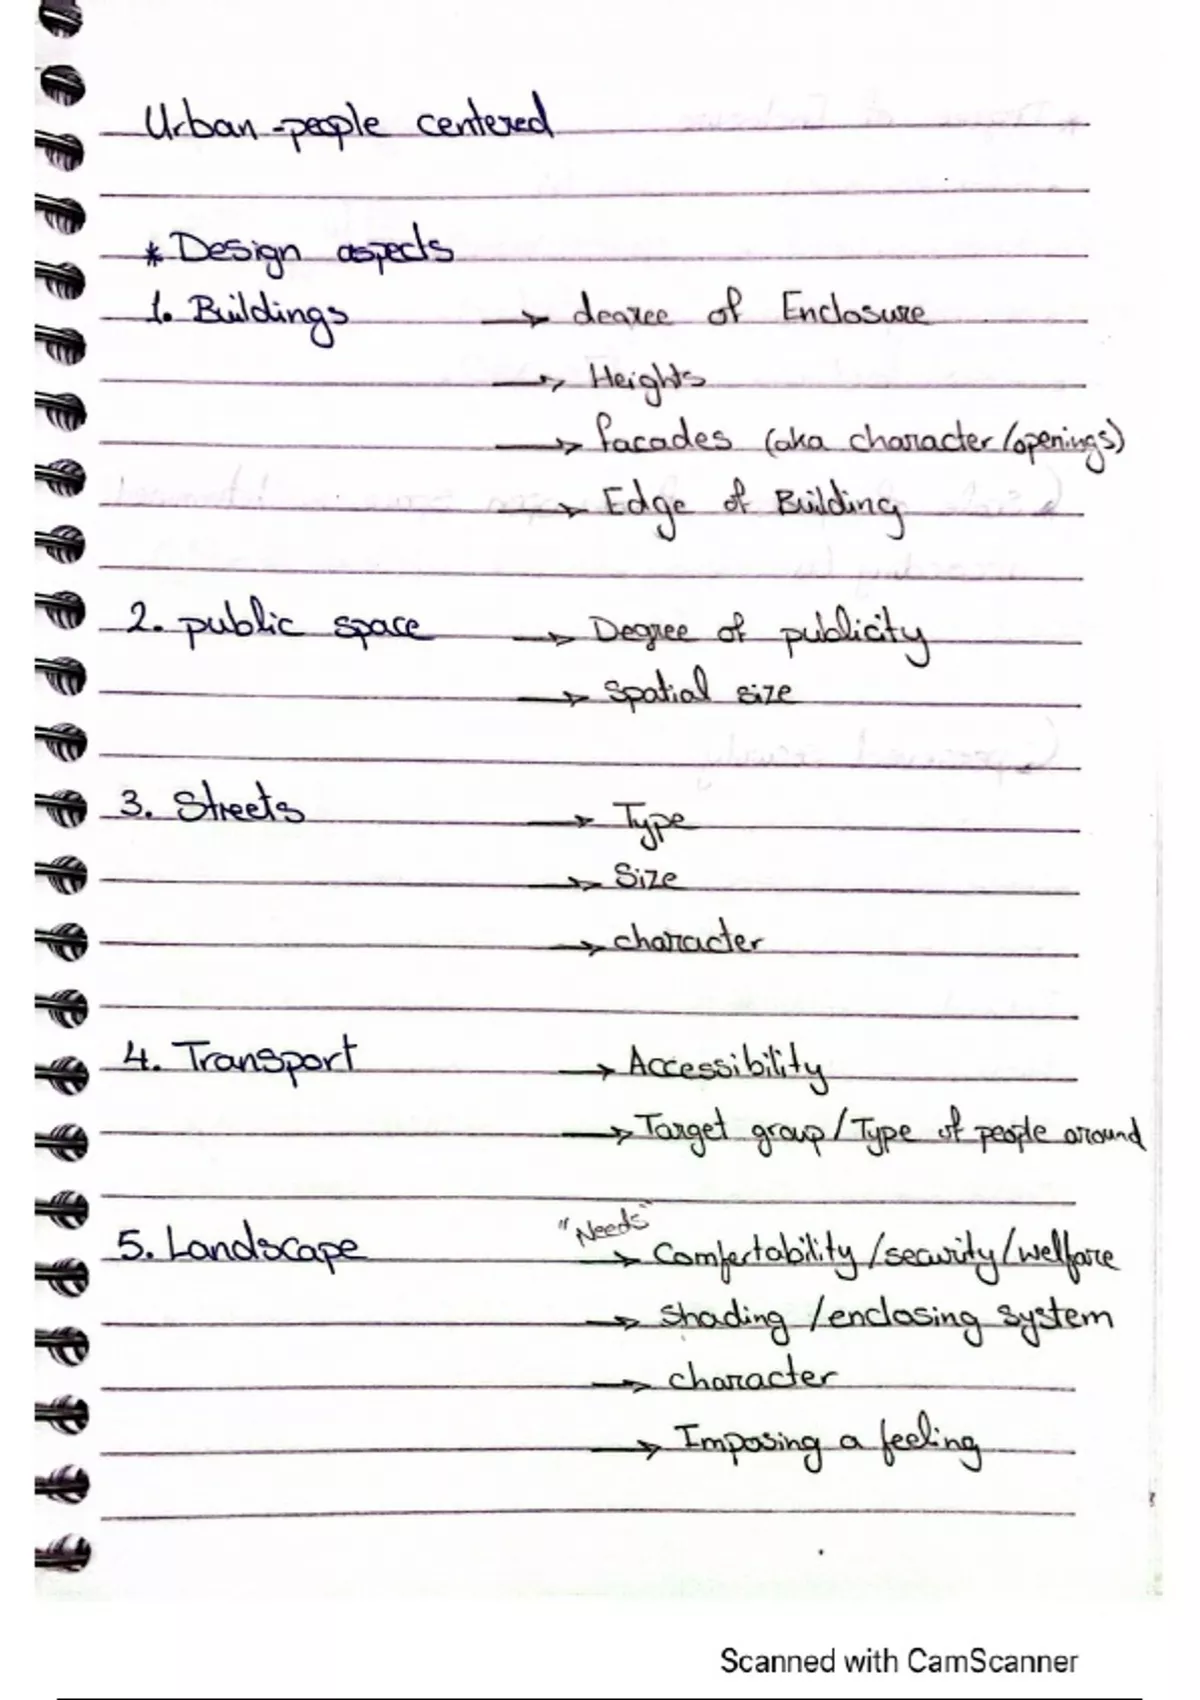 Urban-people centered
* Design aspects
1. Buildings → dearee of Enclosure
→ Heights
→ facades (aka character/openings)
→ Edge of Building
2. public space → Degree of publicity
→ Spatial size
3. Streets → Type
→ Size
→ character
4. Transport → Accessibility
→ Target group/Type of people around
"Needs"
5. Landscape → Comfertability/security/welfare
→ Shading/enclosing system
→ character
→ Imposing a feeling
Scanned with CamScanner